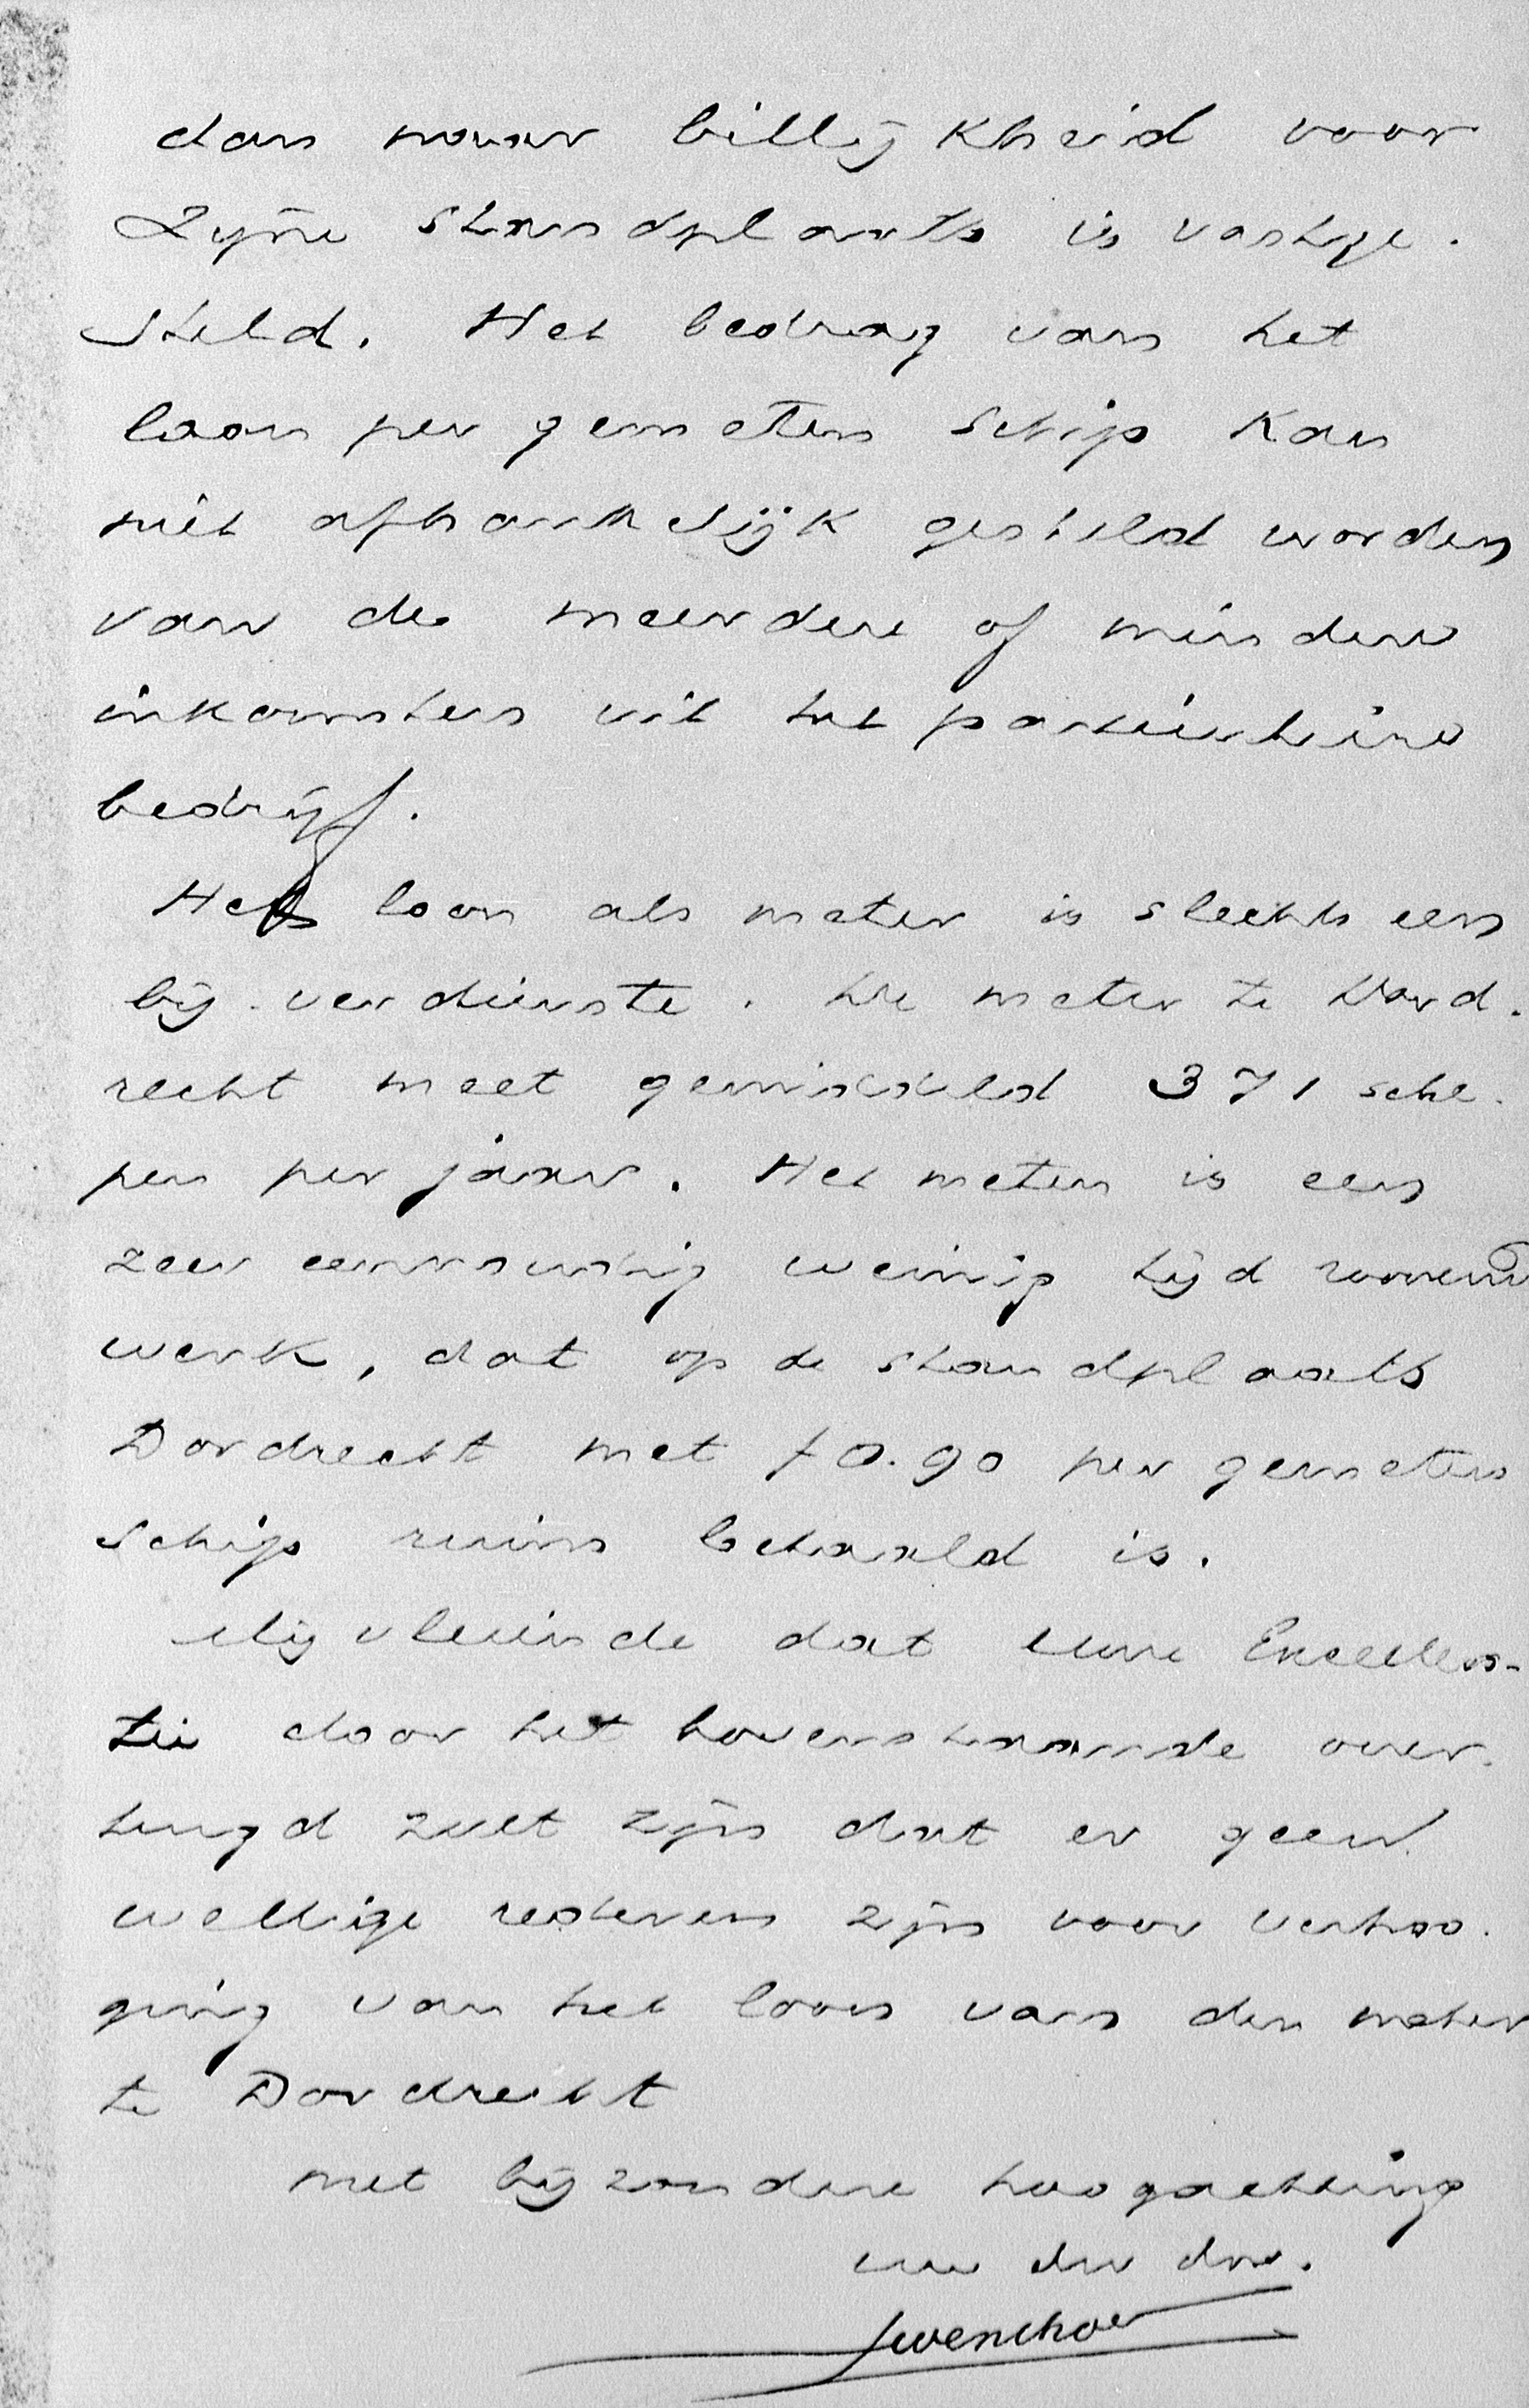 dan naar billijkheid voor
Zijne standplaats is vastge-
steld. Het bedrag van het
loon per gemeten schip kan
niet afhankelijk gesteld worden
van de meerdere of mindere
inkomsten uit het particuliere
bedrijf.
Het loon als meter is slechts een
bij-verdienste. De meter te Dord-
recht meet gemiddeld 371 sche-
pen per jaar. Het meten is een
zeer eenvoudig weinig tijd roovend
werk, dat op de standplaats
Dordrecht met f 0.90 per gemeten
schip ruim betaald is.
Mij vleiende dat Uwe Excellen-
tie door het bovenstaande over-
tuigd zult zijn dat er geen
wettige redenen zijn voor verhoo-
ging van het loon van den meter
te Dordrecht
met bijzondere hoogachting
uw dw dnr.